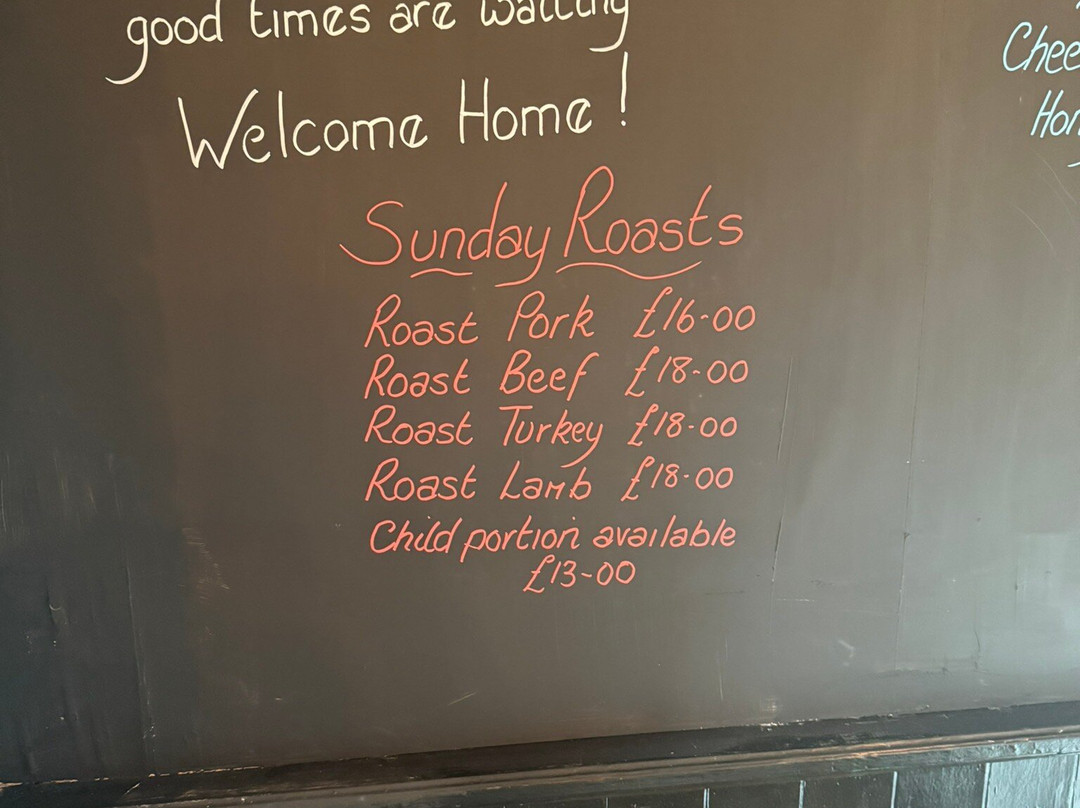 good times are waiting
Welcome Home!
Sunday Roasts
Roast Pork £16-00
Roast Beef £18-00
Roast Turkey £18-00
Roast Lamb £18-00
Child portion available
£13-00